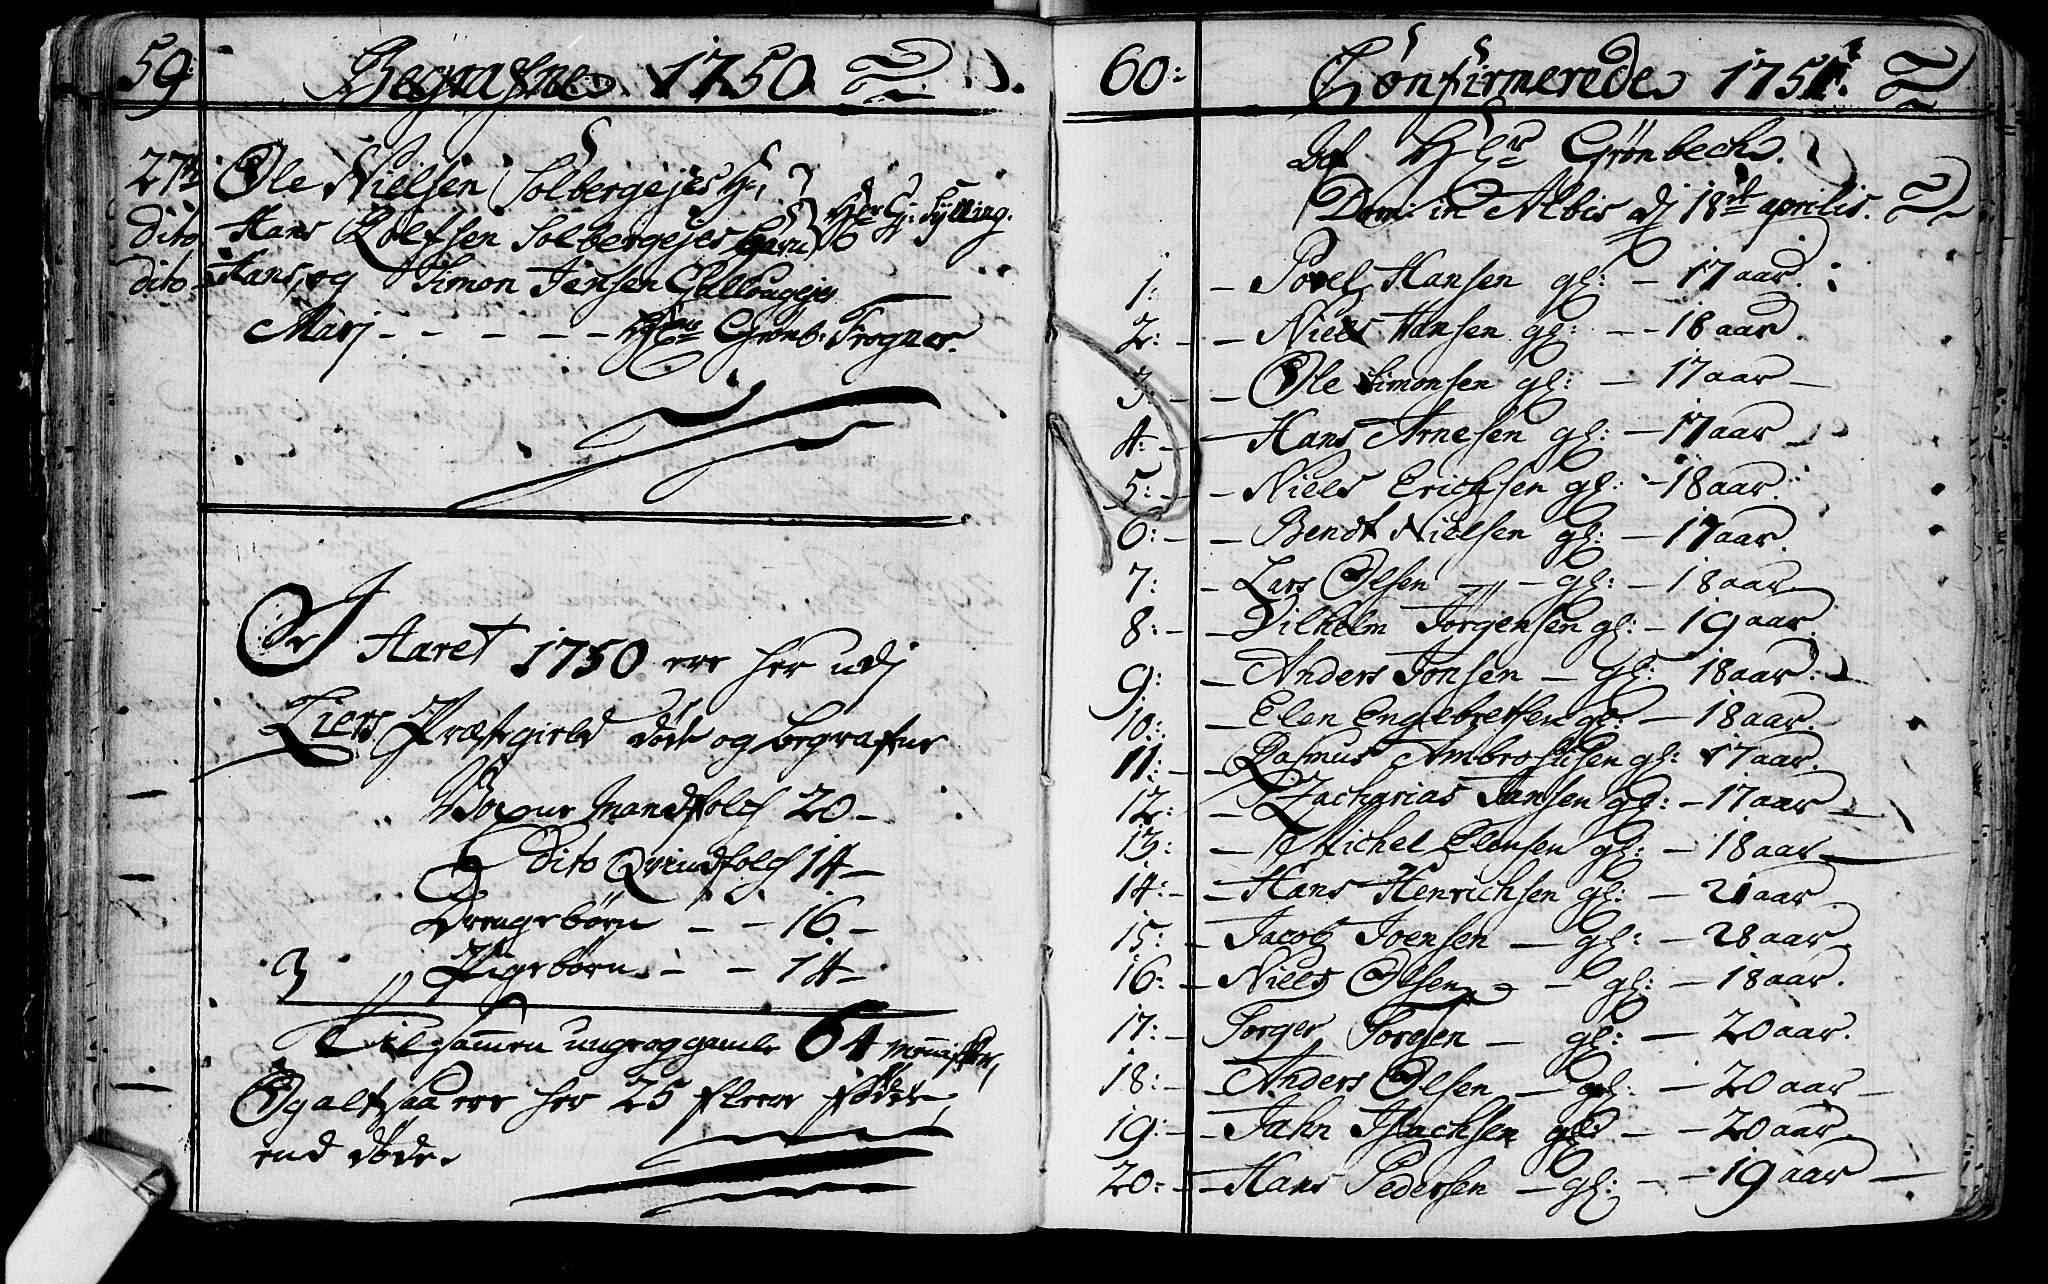 59:
Begrafne 1750
27de Ole Nielsen Solbergejes
dito Hans Rolfsen Solbergejes Barn Hr: Gr: Sylling.
dito Hans, og Simon Jensen Gullougejes
Marj - - - - - - Hr: Grønb: Frogner.
I Aaret 1750 ere her udj
Liers Præstegield døde og begrafne
Voxne Mandfolch 20 -
Dito Qvindfolch 14 -
Drengebørn - - 16 -
Pigebørn - - 14 -
Tilsammen unge og gamle 64 Mennisker,
Og altsaa ere her 25 fleere fødde,
end døde.
60:
Confirmerede 1751.
Af Hr Grønbech.
Domi: in Albis dj 18de aprilis.
1: - Povel Hansen gl: - 17 aar.
2: - - Niels Hansen gl: - - 18 aar.
3: - - Ole Simonsen gl: - 17 aar -
4: - - Hans Arnesen gl: - 17 aar -
5: - - Niels Erichsen gl: - 18 aar.
6: - - Bendt Nielsen gl: - 17 aar.
7: - Lars Olsen - gl: - 18 aar.
8: - - Vilhelm Jørgensen gl: - 19 aar.
9: - Anders Jonsen - gl: 18 aar. -
10: - Elen Engebretsen gl: - 18 aar.
11: - - Rasmus Ambrosiusen gl: 17 aar.
12: - Zacharias Jansen gl: - 17 aar -
13: - Michel Elensen gl: - 18 aar -
14: - - Hans Henrichsen gl: - 21 aar.
15: - Jacob Joensen - gl: - 28 aar.
16: - Niels Olsen - gl: - 18 aar.
17: - Torger Torgen - gl: - 20 aar.
18: - - Anders Olsen - gl: - 20 aar -
19: - - Jahn Isachsen gl: - - 20 aar.
20: - - Hans Pedersen - gl: - - 19 aar -